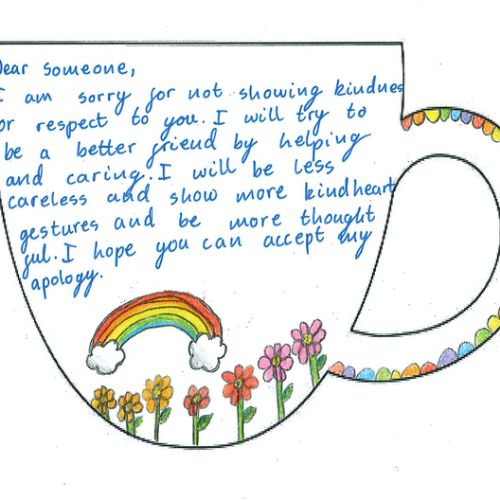 Dear someone,
I am sorry for not showing kindness
or respect to you. I will try to
be a better friend by helping
and caring. I will be less
careless and show more kindheart
gestures and be more thought
ful. I hope you can accept my
apology.